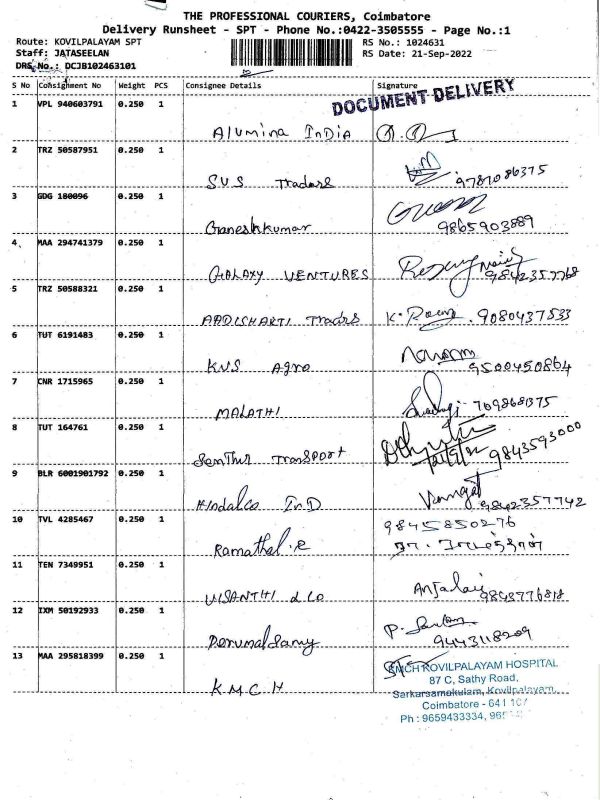 THE PROFESSIONAL COURIERS, Coimbatore
Delivery Runsheet - SPT - Phone No.:0422-3505555 - Page No.:1
Route: KOVILPALAYAM SPT
RS No.: 1024631
Staff: JATASEELAN
RS Date: 21-Sep-2022
DRS No.: DCJB102463101
S No Consignment No Weight PCS Consignee Details Signature
DOCUMENT DELIVERY
1 VPL 940603791 0.250 1
Alumina India
2 TRZ 50587951 0.250 1
SVS Traders 9787086375
3 GDG 180096 0.250 1
Ganeshkumar 9865903889
4 MAA 294741379 0.250 1
GALAXY VENTURES 9842357768
5 TRZ 50588321 0.250 1
AADISHAKTI Traders 9080437533
6 TUT 6191483 0.250 1
KVS Agro 9500450864
7 CNR 1715965 0.250 1
MALATHI 7098681375
8 TUT 164761 0.250 1
Senthur Transport 9843593000
9 BLR 6001901792 0.250 1
Hindalco InD Vengat 9842357742
10 TVL 4285467 0.250 1
9845850276
Ramathal.R
11 TEN 7349951 0.250 1
VISANTHI & Co Anjalai
12 IXM 50192933 0.250 1
Perumal Samy 9443118209
13 MAA 295818399 0.250 1
K M C H
KMCH KOVILPALAYAM HOSPITAL
87 C, Sathy Road,
Sarkarsamakulam, Kovilpalayam,
Coimbatore - 641 107
Ph : 9659433334,